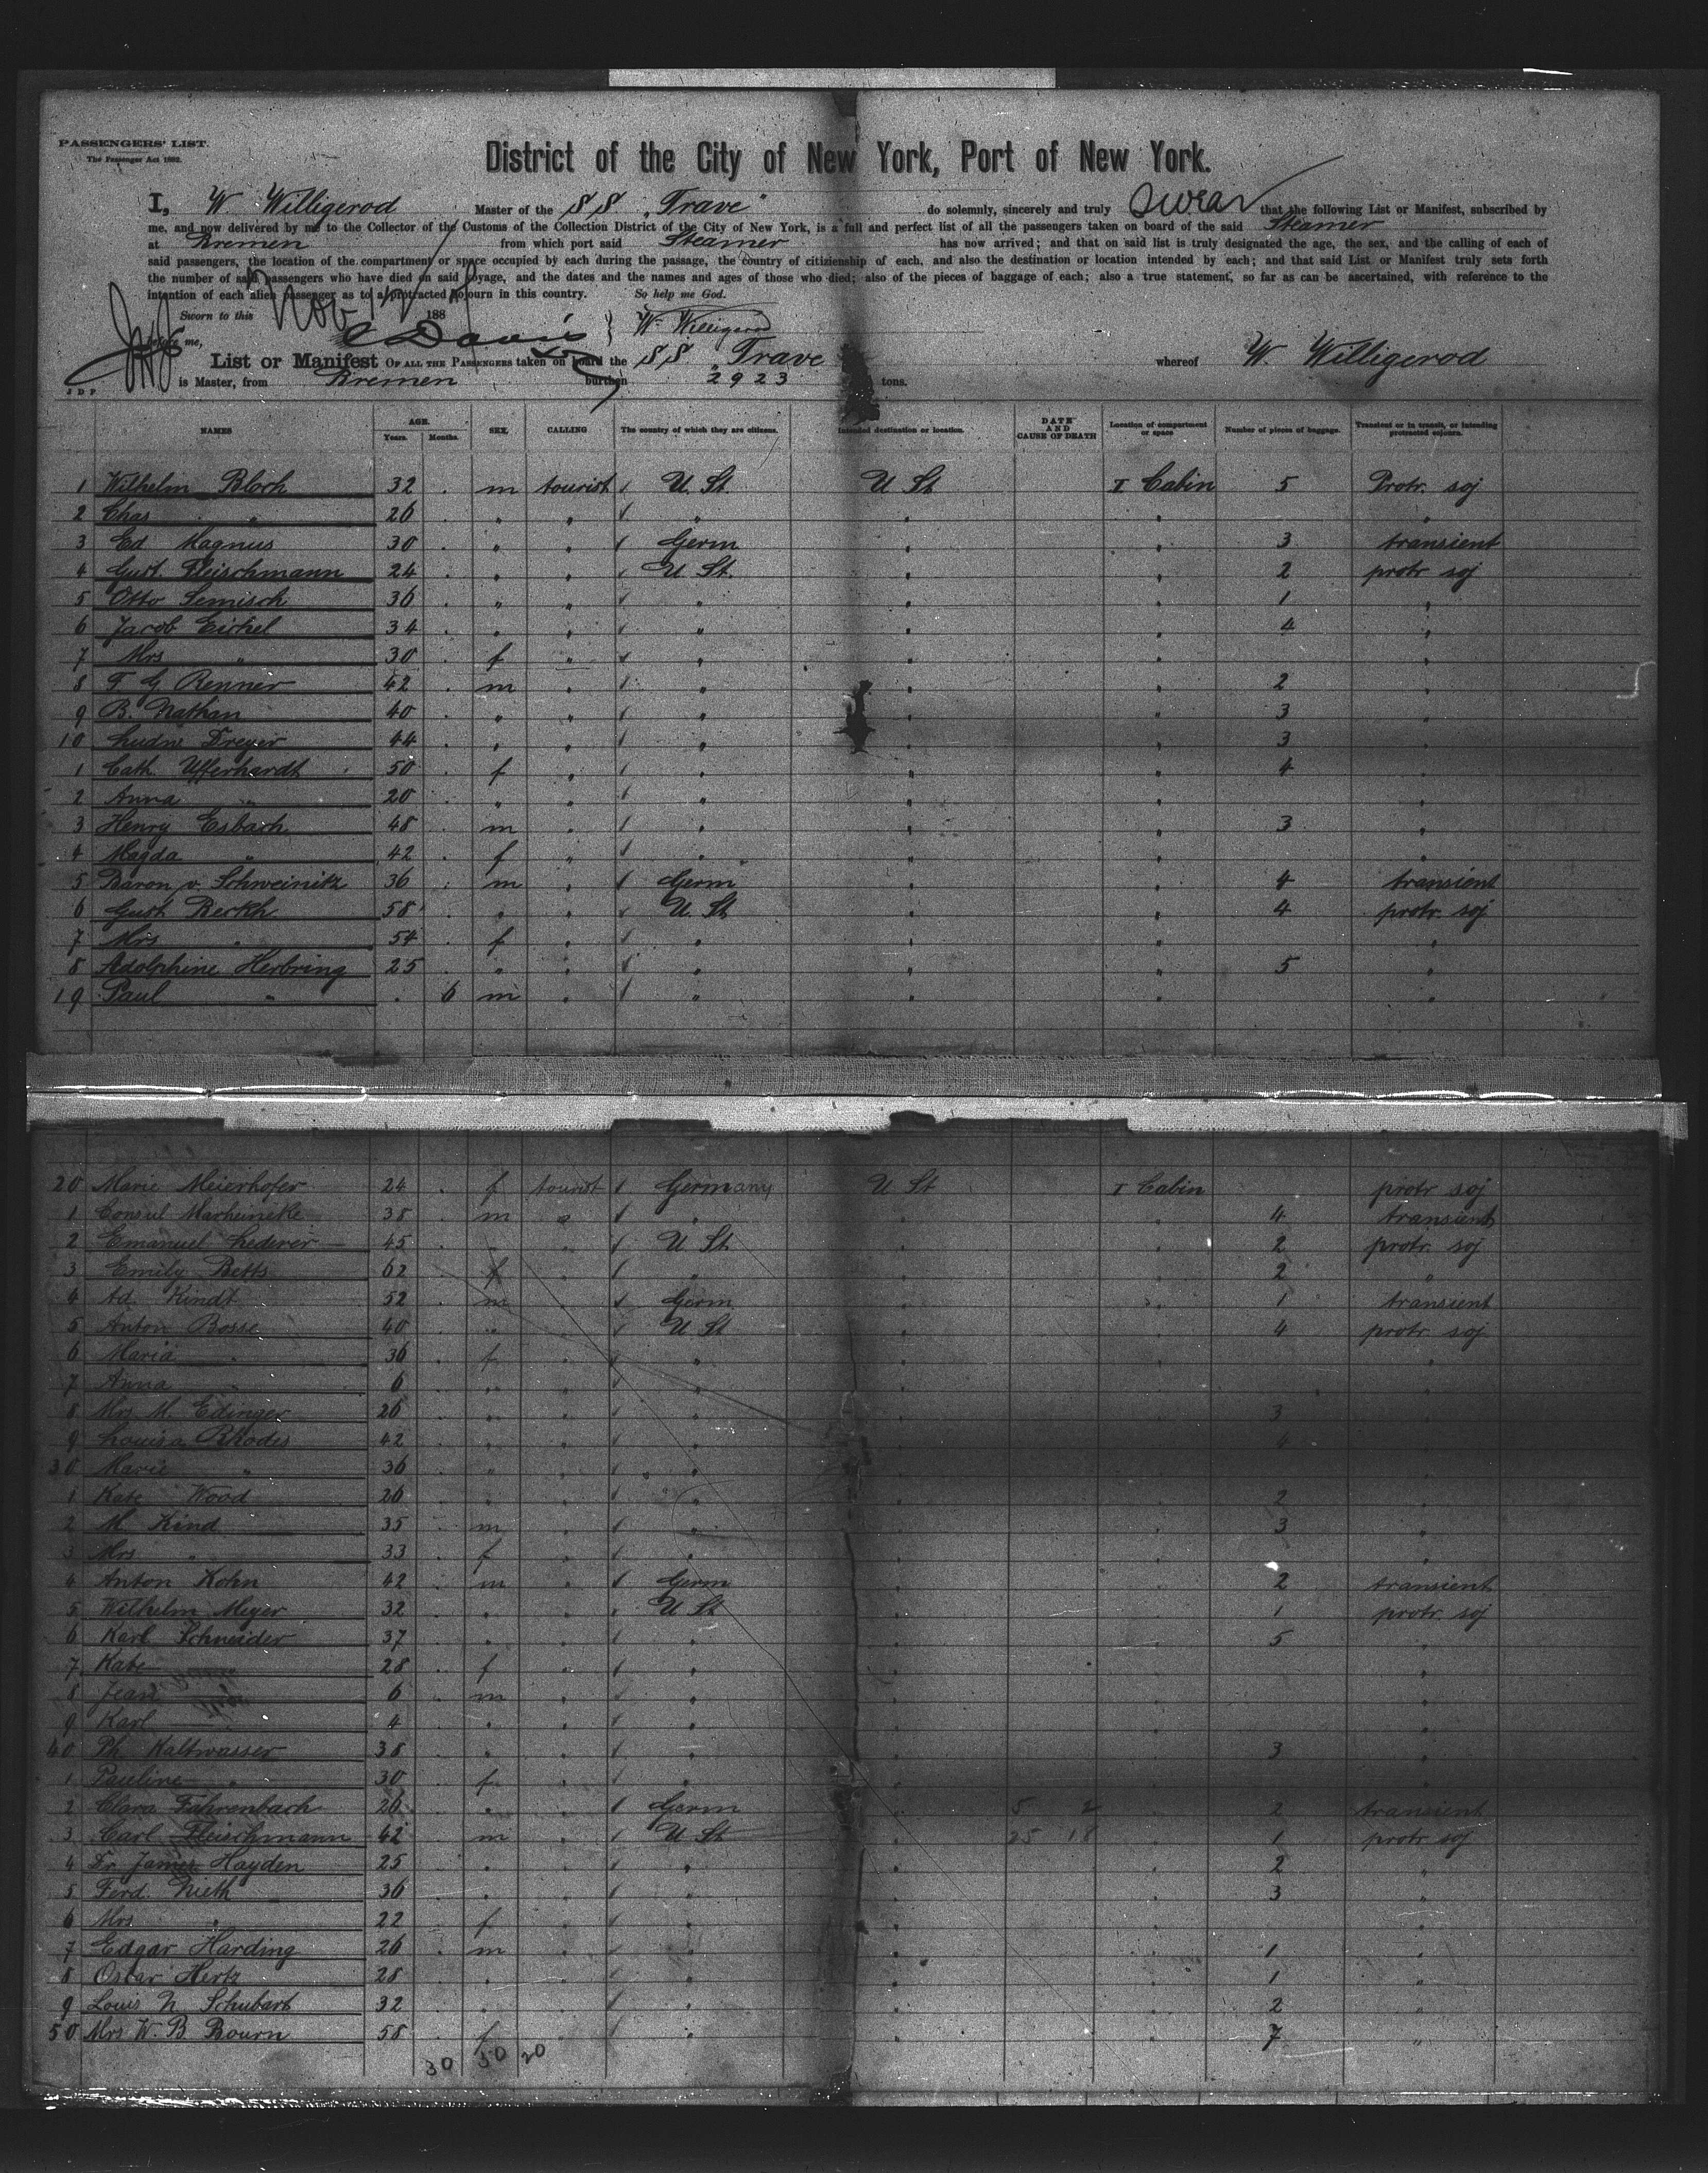 PASSENGERS' LIST.
The Passenger Act 1882.
District of the City of New York, Port of New York.
I, W Willigerod Master of the SS „Trave" do solemnly, sincerely and truly swear that the following List or Manifest, subscribed by
me, and now delivered by me to the Collector of the Customs of the Collection District of the City of New York, is a full and perfect list of all the passengers taken on board of the said Steamer
at Bremen from which port said Steamer has now arrived; and that on said list is truly designated the age, the sex, and the calling of each of
said passengers, the location of the compartment or space occupied by each during the passage, the country of citizienship of each, and also the destination or location intended by each; and that said List or Manifest truly sets forth
the number of said passengers who have died on said voyage, and the dates and the names and ages of those who died; also of the pieces of baggage of each; also a true statement, so far as can be ascertained, with reference to the
intention of each alien passenger as to a protracted sojourn in this country. So help me God.
Sworn to this Nov 188
before me, C Davis } W. Willigerod
List or Manifest OF ALL THE PASSENGERS taken on board the SS „Trave whereof W. Willigerod
J D P is Master, from Bremen burthen 2923 tons.
NAMES AGE. Years. Months. SEX. CALLING The country of which they are citizens. Intended destination or location. DATE AND CAUSE OF DEATH Location of compartment or space Number of pieces of baggage. Transient or in transit, or intending protracted sojourn.
1 Wilhelm Bloch 32 . m tourist U. St. U St I Cabin 5 Protr. soj
2 Chas " 26 . " " " " " "
3 Ed Magnus 30 . " " Germ " " 3 transient
4 Gust. Fleischmann 24 . " " U St. " " 2 protr soj
5 Otto Semisch 36 . " " " " " 1 "
6 Jacob Eichel 34 . " " " " " 4 "
7 Mrs " 30 . f " " " " "
8 F G Renner 42 . m " " " " 2 "
9 B. Nathan 40 . " " " " " 3 "
10 Ludw Dreyer 44 . " " " " " 3 "
1 Cath. Ufferhardt 50 . f " " " " 4 "
2 Anna " 20 . " " " " " "
3 Henry Esbach 48 . m " " " " 3 "
4 Magda " 42 . f " " " " "
5 Baron v. Schweinitz 36 . m " Germ " " 4 transient
6 Gust Beckh 58 . " " U. St " " 4 protr. soj
7 Mrs " 54 . f " " " " "
8 Adolphine Herbring 25 . " " " " " 5 "
19 Paul " . 6 m " " " " "
20 Marie Meierhofer 24 . f tourist Germany U St I Cabin protr soj
1 Consul Marheineke 38 . m " " " " 4 transient
2 Emanuel Lederer 45 . " " U St " " 2 protr. soj
3 Emily Betts 62 . f " " " " 2 "
4 Ad. Kindt 52 . m " Germ " " 1 transient
5 Anton Bosse 40 . " " U St " " 4 protr soj
6 Maria " 36 . f " " " " "
7 Anna " 6 . " " " " " "
8 Mrs M. Edinger 26 . " " " " " 3 "
9 Louisa Rhodes 42 . " " " " " 4 "
30 Marie " 36 . " " " " " "
1 Kate Wood 26 . " " " " " 2 "
2 M. Kind 35 . m " " " " 3 "
3 Mrs " 33 . f " " " " "
4 Anton Kohn 42 . m " Germ " " 2 transient
5 Wilhelm Meyer 32 . " " U St " " 1 protr. soj
6 Karl Schneider 37 . " " " " " 5 "
7 Kate " 28 . f " " " " "
8 Jean " 6 . m " " " " "
9 Karl " 4 . " " " " " "
40 Ph. Kaltwasser 38 . " " " " " 3 "
1 Pauline " 30 . f " " " " "
2 Clara Fahrenbach 26 . " " Germ " 5 2 " 2 transient
3 Carl Fleischmann 42 . m " U St " 25 18 " 1 protr soj
4 Dr James Hayden 25 . " " " " " 2 "
5 Ferd. Nieth 36 . " " " " " 3 "
6 Mrs " 22 f " " " " "
7 Edgar Harding 26 . m " " " " 1 "
8 Oscar Hertz 28 . " " " " " 1 "
9 Louis N Schubart 32 . " " " " " 2 "
50 Mrs W. B. Bourn 58 . f " " " " 7 "
30 50 20